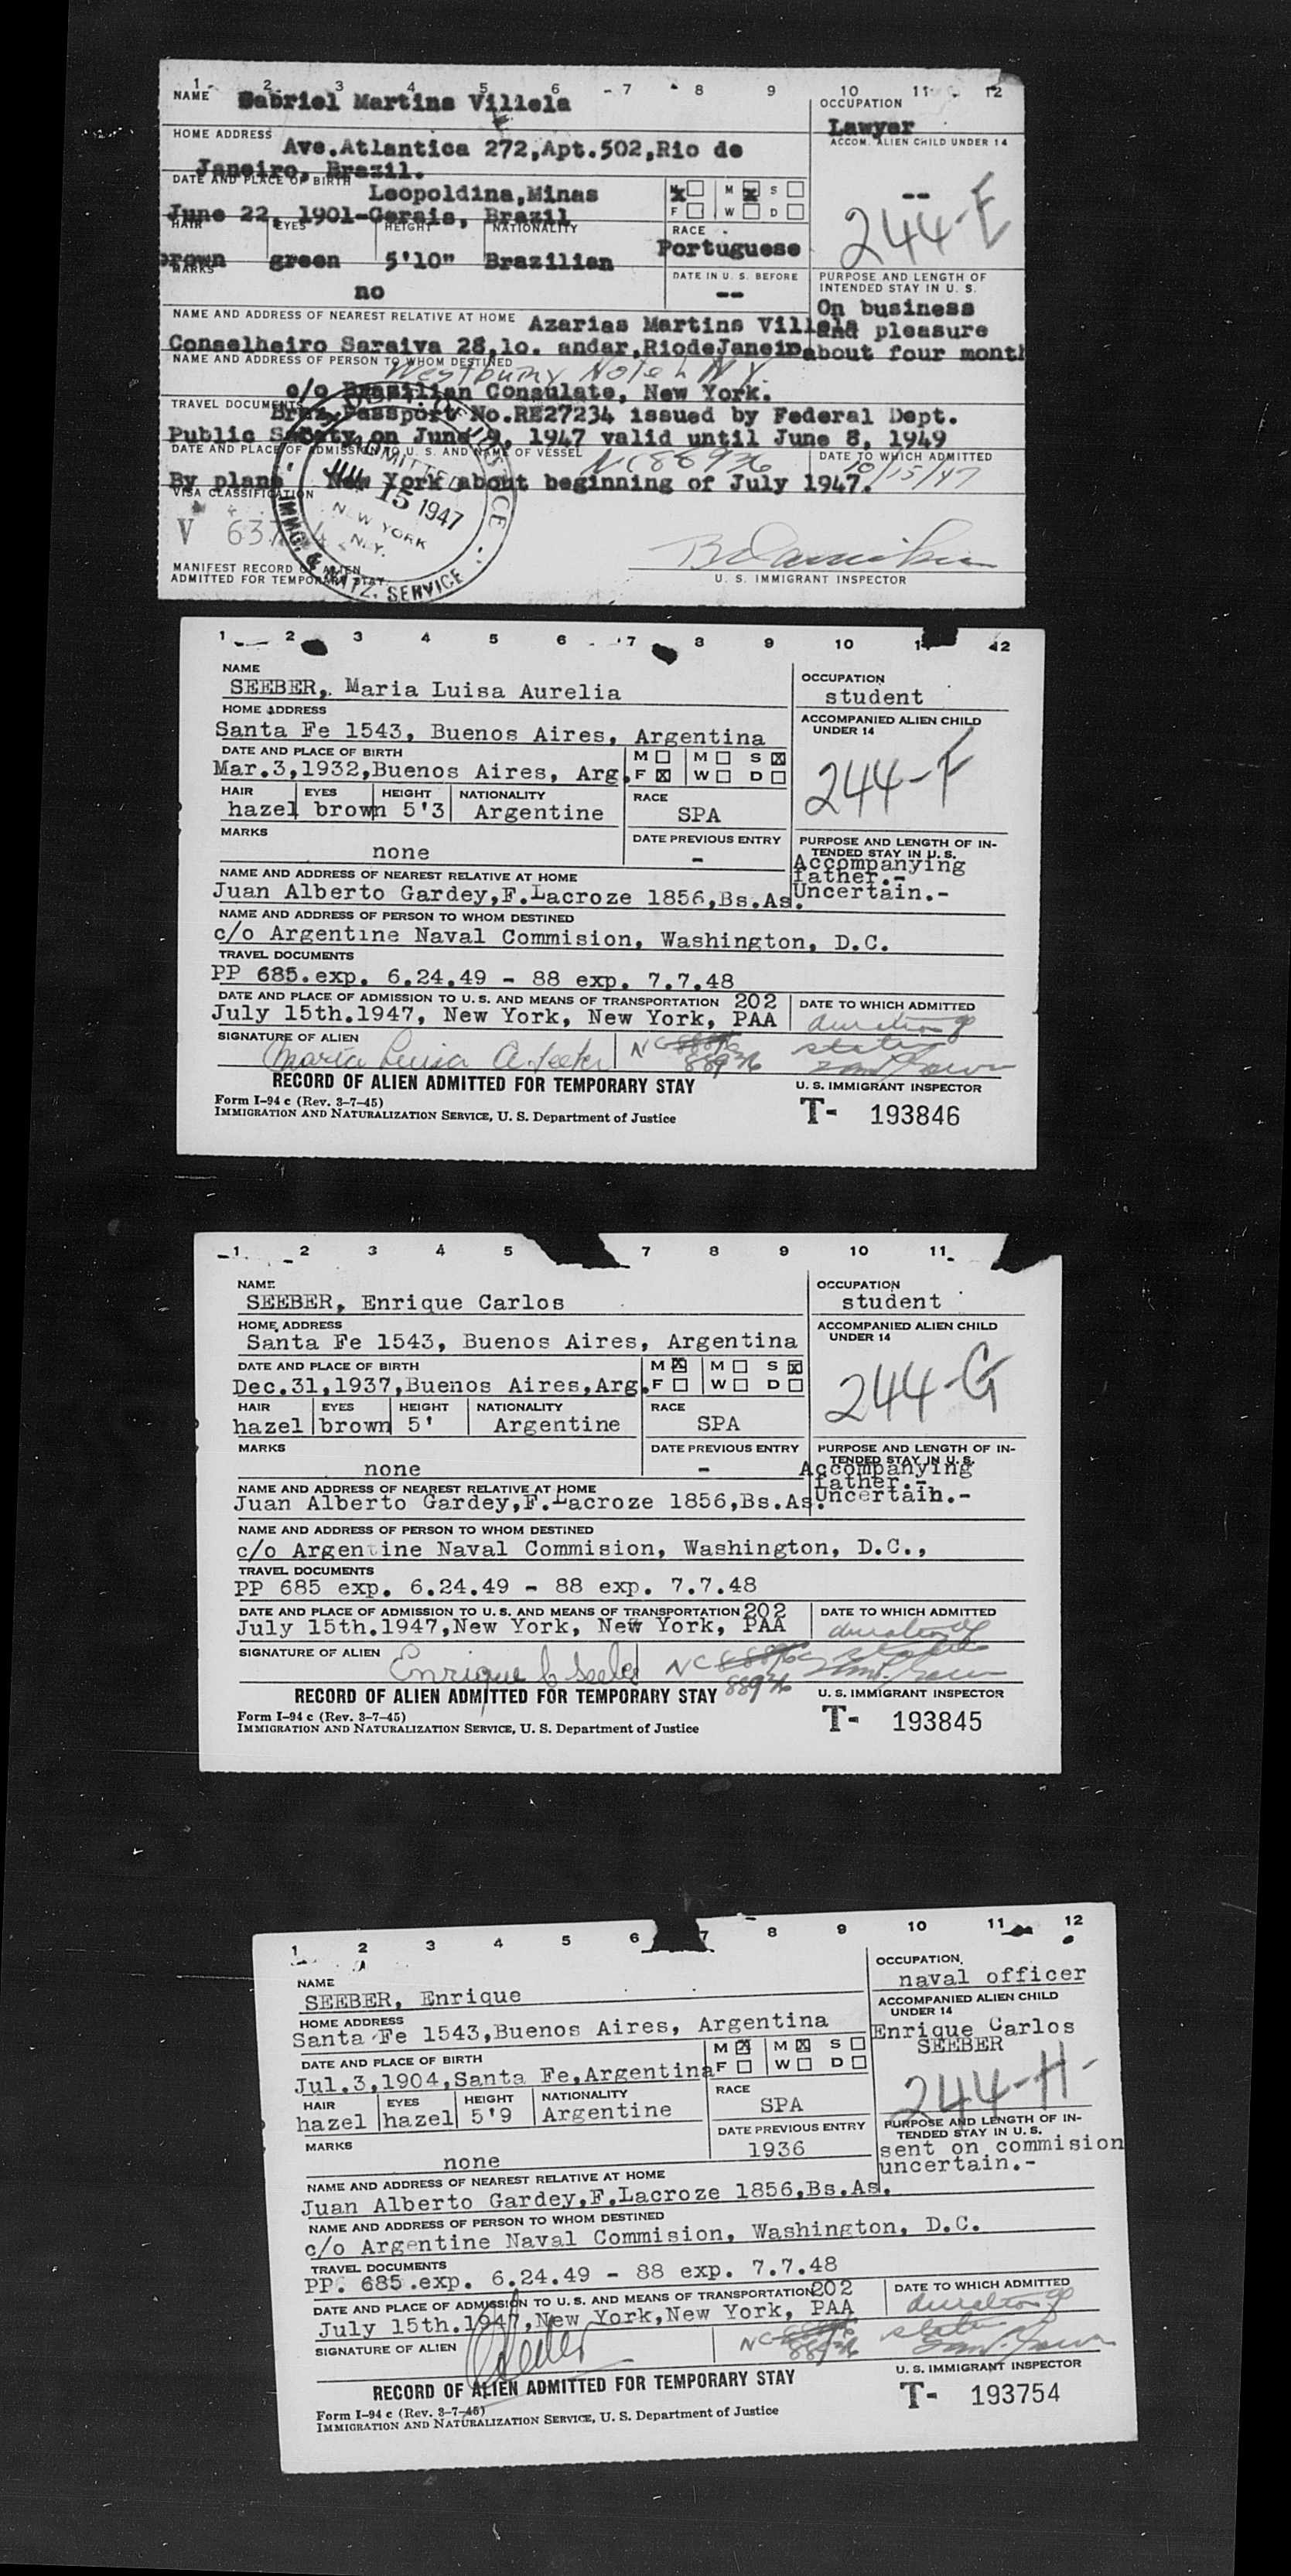 1 2 3 4 5 6 7 8 9 10 11 12
NAME Gabriel Martins Villela
OCCUPATION
Lawyer
HOME ADDRESS
Ave.Atlantica 272,Apt.502,Rio de
Janeiro, Brazil.
ACCOM. ALIEN CHILD UNDER 14
--
244-E
DATE AND PLACE OF BIRTH Leopoldina,Minas
June 22, 1901-Gerais, Brazil
M X M X S
F W D
HAIR EYES HEIGHT NATIONALITY
brown green 5'10" Brazilian
RACE
Portuguese
MARKS
no
DATE IN U. S. BEFORE
--
PURPOSE AND LENGTH OF
INTENDED STAY IN U. S.
On business
and pleasure
about four month
NAME AND ADDRESS OF NEAREST RELATIVE AT HOME Azarias Martins Villela
Conselheiro Saraiva 28,1o. andar,RiodeJaneiro
NAME AND ADDRESS OF PERSON TO WHOM DESTINED
Westbury Hotel NY.
c/o Brazilian Consulate, New York.
TRAVEL DOCUMENTS
Braz.Passport No.RE27234 issued by Federal Dept.
Public Safety on June 9, 1947 valid until June 8, 1949
DATE AND PLACE OF ADMISSION TO U. S. AND NAME OF VESSEL NC88936
DATE TO WHICH ADMITTED
10/15/47
By plane New York about beginning of July 1947.
VISA CLASSIFICATION
ADMITTED
JUL 15 1947
NEW YORK
N.Y.
IMMG. & NATZ. SERVICE
MANIFEST RECORD OF ALIEN
ADMITTED FOR TEMPORARY STAY
U. S. IMMIGRANT INSPECTOR
1 2 3 4 5 6 7 8 9 10 11 12
NAME
SEEBER, Maria Luisa Aurelia
OCCUPATION
student
HOME ADDRESS
Santa Fe 1543, Buenos Aires, Argentina
ACCOMPANIED ALIEN CHILD
UNDER 14
244-F
DATE AND PLACE OF BIRTH
Mar.3,1932,Buenos Aires, Arg.
M M S X
F X W D
HAIR EYES HEIGHT NATIONALITY
hazel brown 5'3 Argentine
RACE
SPA
MARKS
none
DATE PREVIOUS ENTRY
-
PURPOSE AND LENGTH OF IN-
TENDED STAY IN U. S.
Accompanying
father.-
Uncertain.-
NAME AND ADDRESS OF NEAREST RELATIVE AT HOME
Juan Alberto Gardey,F.Lacroze 1856,Bs.As.
NAME AND ADDRESS OF PERSON TO WHOM DESTINED
c/o Argentine Naval Commision, Washington, D.C.
TRAVEL DOCUMENTS
PP 685.exp. 6.24.49 - 88 exp. 7.7.48
DATE AND PLACE OF ADMISSION TO U. S. AND MEANS OF TRANSPORTATION 202
July 15th.1947, New York, New York, PAA
DATE TO WHICH ADMITTED
duration of
status
SIGNATURE OF ALIEN Maria Luisa A. Seeber
NC
88936
RECORD OF ALIEN ADMITTED FOR TEMPORARY STAY
U. S. IMMIGRANT INSPECTOR
Form I-94 c (Rev. 3-7-45)
IMMIGRATION AND NATURALIZATION SERVICE, U. S. Department of Justice
T- 193846
1 2 3 4 5 7 8 9 10 11
NAME
SEEBER, Enrique Carlos
OCCUPATION
student
HOME ADDRESS
Santa Fe 1543, Buenos Aires, Argentina
ACCOMPANIED ALIEN CHILD
UNDER 14
244-G
DATE AND PLACE OF BIRTH
Dec.31,1937,Buenos Aires,Arg.
M X M S X
F W D
HAIR EYES HEIGHT NATIONALITY
hazel brown 5' Argentine
RACE
SPA
MARKS
none
DATE PREVIOUS ENTRY
-
PURPOSE AND LENGTH OF IN-
TENDED STAY IN U. S.
Accompanying
father.-
Uncertain.-
NAME AND ADDRESS OF NEAREST RELATIVE AT HOME
Juan Alberto Gardey,F.Lacroze 1856,Bs.As.
NAME AND ADDRESS OF PERSON TO WHOM DESTINED
c/o Argentine Naval Commision, Washington, D.C.,
TRAVEL DOCUMENTS
PP 685 exp. 6.24.49 - 88 exp. 7.7.48
DATE AND PLACE OF ADMISSION TO U. S. AND MEANS OF TRANSPORTATION 202
July 15th.1947,New York, New York, PAA
DATE TO WHICH ADMITTED
duration of
status
SIGNATURE OF ALIEN Enrique C Seeber
NC
88936
RECORD OF ALIEN ADMITTED FOR TEMPORARY STAY
U. S. IMMIGRANT INSPECTOR
Form I-94 c (Rev. 3-7-45)
IMMIGRATION AND NATURALIZATION SERVICE, U. S. Department of Justice
T- 193845
1 2 3 4 5 6 7 8 9 10 11 12
NAME
SEEBER, Enrique
OCCUPATION
naval officer
HOME ADDRESS
Santa Fe 1543,Buenos Aires, Argentina
ACCOMPANIED ALIEN CHILD
UNDER 14
Enrique Carlos
SEEBER
244-H-
DATE AND PLACE OF BIRTH
Jul.3,1904,Santa Fe,Argentina
M X M X S
F W D
HAIR EYES HEIGHT NATIONALITY
hazel hazel 5'9 Argentine
RACE
SPA
MARKS
none
DATE PREVIOUS ENTRY
1936
PURPOSE AND LENGTH OF IN-
TENDED STAY IN U. S.
sent on commision
uncertain.-
NAME AND ADDRESS OF NEAREST RELATIVE AT HOME
Juan Alberto Gardey,F.Lacroze 1856,Bs.As.
NAME AND ADDRESS OF PERSON TO WHOM DESTINED
c/o Argentine Naval Commision, Washington, D.C.
TRAVEL DOCUMENTS
PP. 685.exp. 6.24.49 - 88 exp. 7.7.48
DATE AND PLACE OF ADMISSION TO U. S. AND MEANS OF TRANSPORTATION 202
July 15th.1947,New York,New York, PAA
DATE TO WHICH ADMITTED
duration of
status
SIGNATURE OF ALIEN
NC
88936
RECORD OF ALIEN ADMITTED FOR TEMPORARY STAY
U. S. IMMIGRANT INSPECTOR
Form I-94 c (Rev. 3-7-45)
IMMIGRATION AND NATURALIZATION SERVICE, U. S. Department of Justice
T- 193754